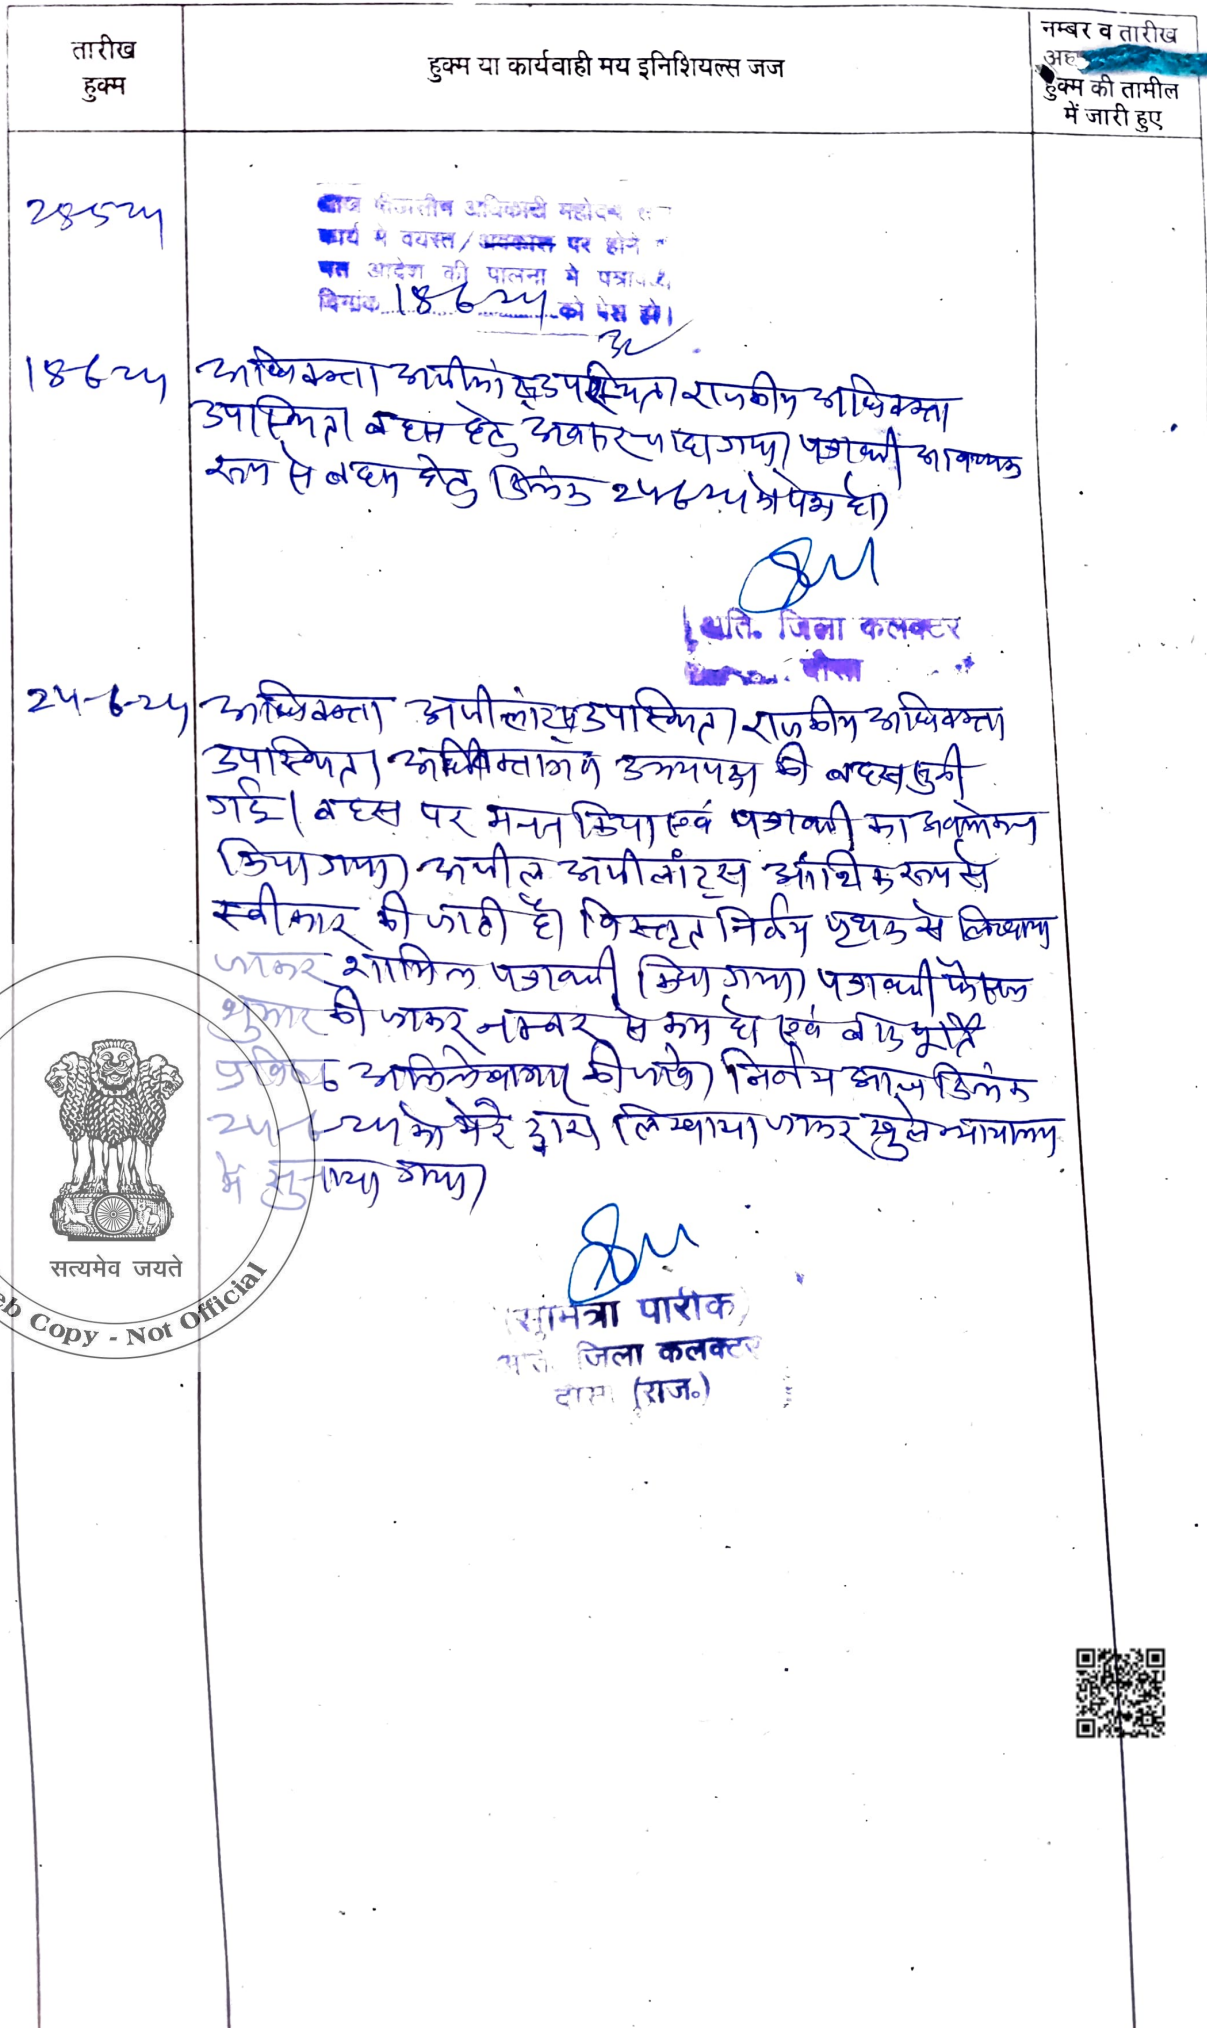 तारीख
हुक्म
हुक्म या कार्यवाही मय इनिशियल्स जज
नम्बर व तारीख
अह
हुक्म की तामील
में जारी हुए
28-5-24
पीठासीन अधिकारी महोदय
कार्य मे वयस्त/अवकाश पर होने
आदेश की पालना मे
दिनांक 18-6-24 को पेश हो।
18-6-24 अधिवक्ता अपीलांट्स उपस्थित। राजकीय अधिवक्ता
उपस्थित। बहस हेतु अवसर चाहा गया। पत्रावली आवश्यक
रूप से बहस हेतु दिनांक 24-6-24 को पेश हो।
अति. जिला कलक्टर
दौसा
24-6-24 अधिवक्ता अपीलांट्स उपस्थित। राजकीय अधिवक्ता
उपस्थित। अधिवक्तागण उभयपक्ष की बहस सुनी
गई। बहस पर मनन किया एवं पत्रावली का अवलोकन
किया गया। अपील अपीलांट्स आंशिक रूप से
स्वीकार की जाती है। विस्तृत निर्णय पृथक से लिखाया
जाकर शामिल पत्रावली किया गया। पत्रावली फैसल
शुमार की जाकर नम्बर से कम हो एवं बाद पूर्ति
प्रविष्ठ अभिलेखागार की जावे। निर्णय आज दिनांक
24-6-24 को मेरे द्वारा लिखाया जाकर खुले न्यायालय
में सुनाया गया।
(सुमित्रा पारीक)
अति. जिला कलक्टर
दौसा (राज.)
सत्यमेव जयते
eb Copy - Not Official